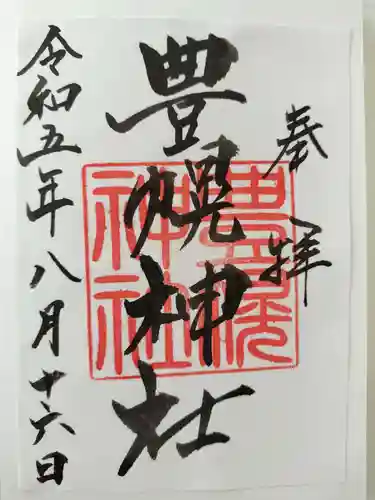 奉拝
豊幌神社
令和五年八月十六日
豊幌神社